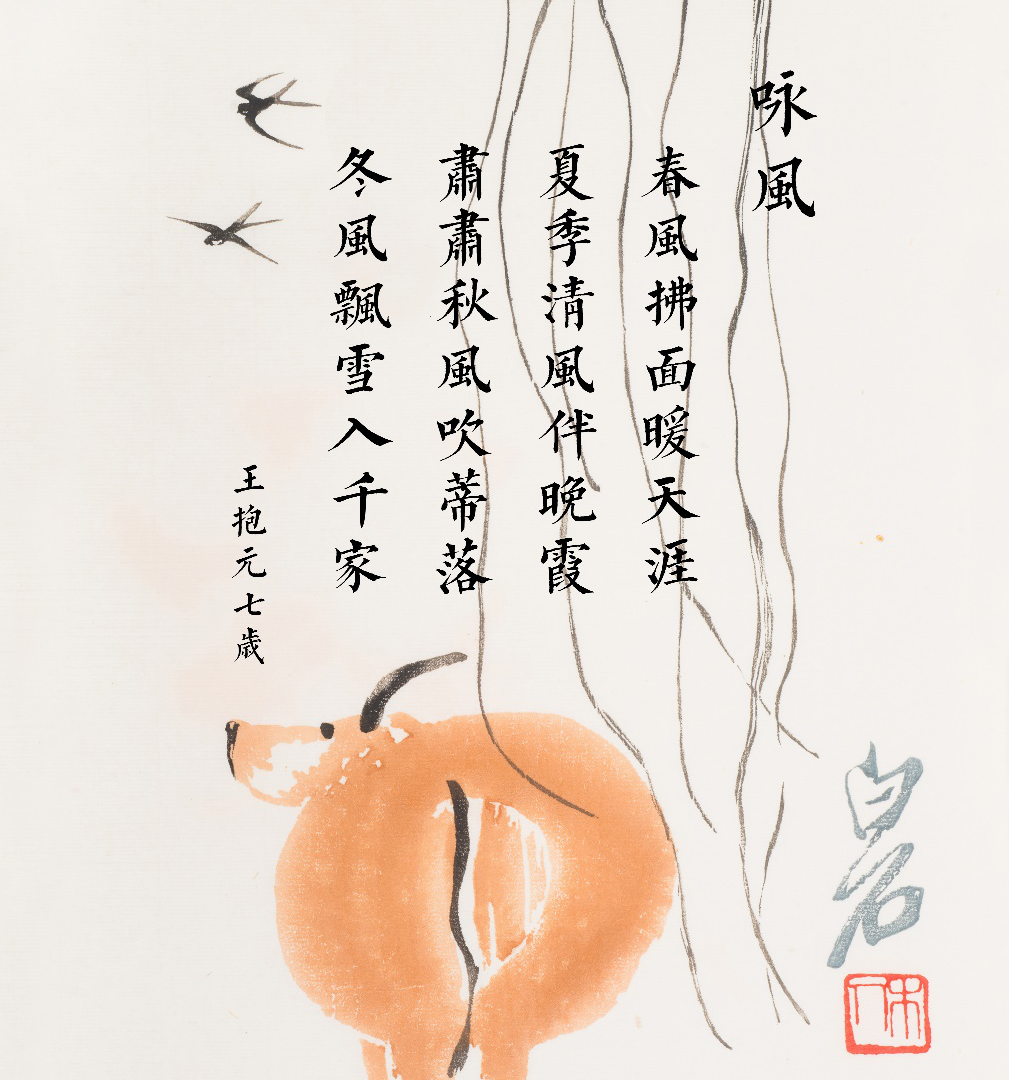 咏風
春風拂面暖天涯
夏季清風伴晚霞
肅肅秋風吹蒂落
冬風飄雪入千家
王抱元七歲
白石
木人